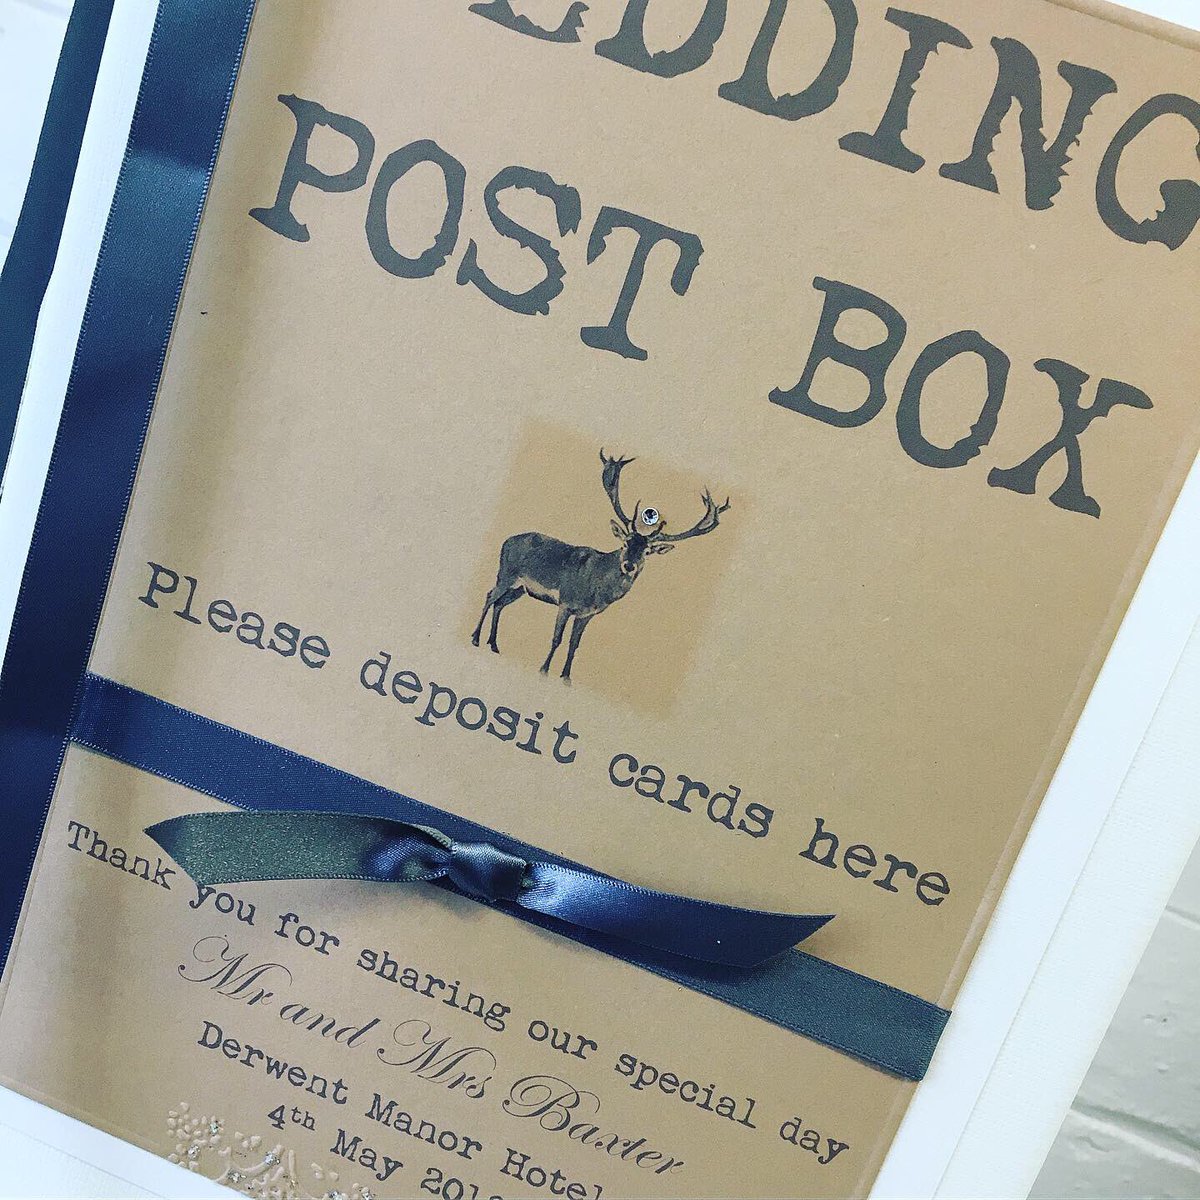 EDDING
POST BOX
Please deposit cards here
Thank you for sharing our special day
Mr and Mrs Baxter
Derwent Manor Hotel
4th May